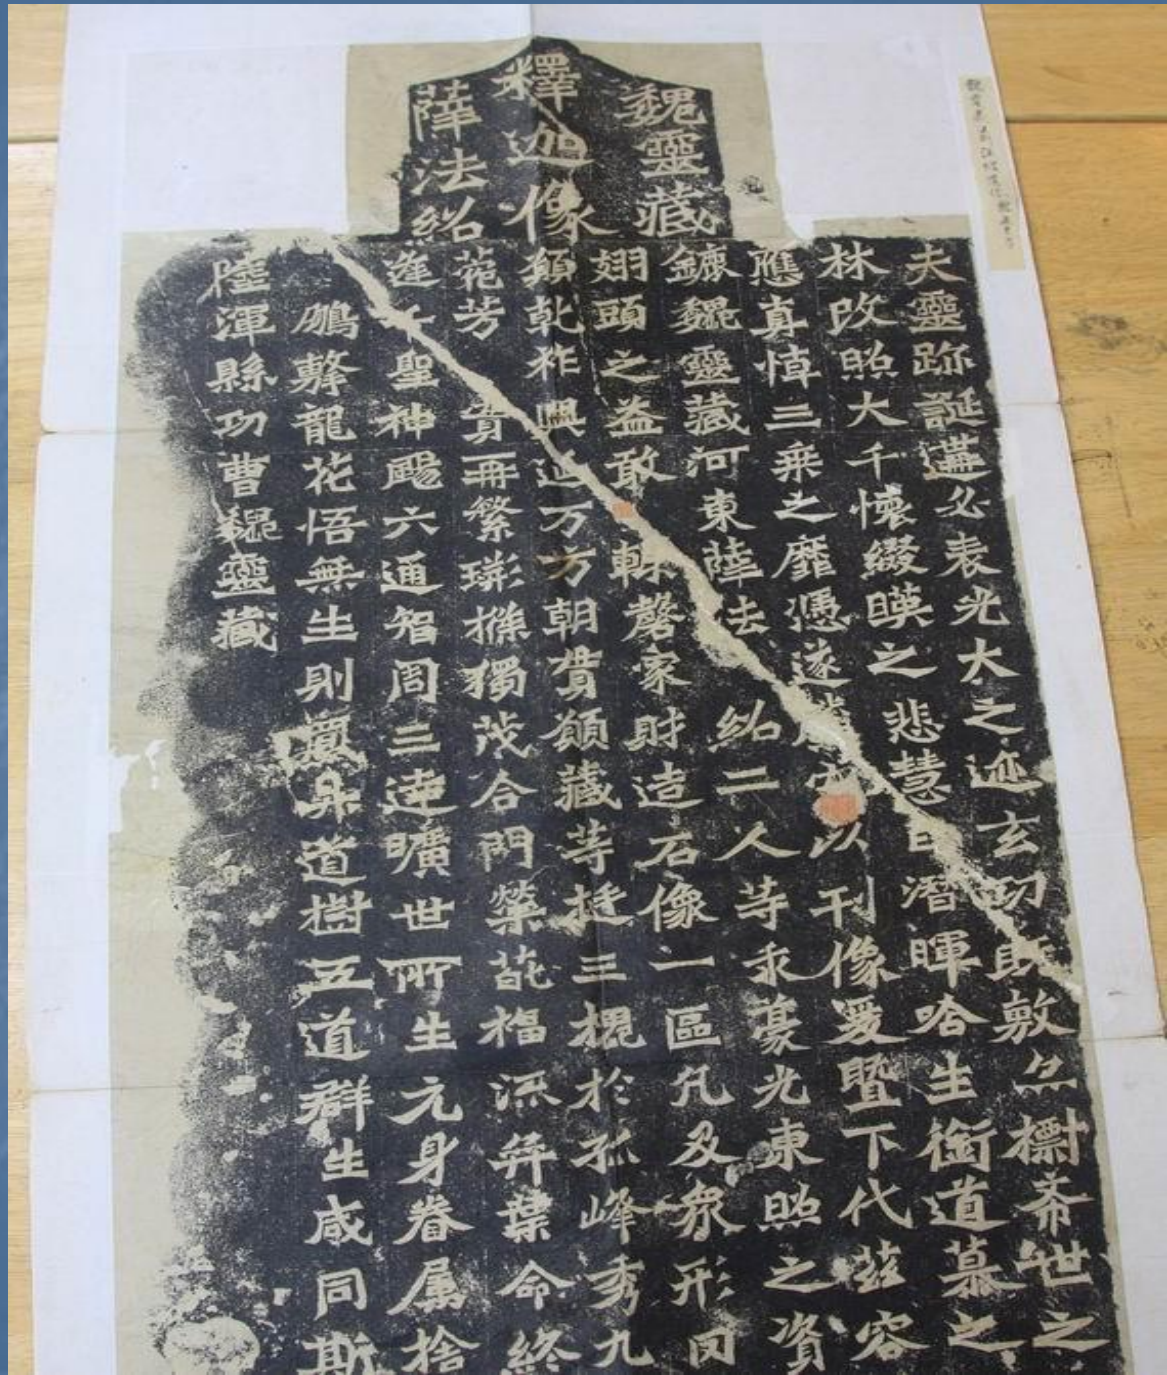 魏靈藏
釋迦像
薛法紹
夫靈跡誕遘必表光大之迹玄功既敷亦標希世之
林改照大千懷綴暎之悲慧日潛暉哈生銜道慕之
應真悼三乘之靡憑遂騰空以刊像爰暨下代茲容
鏕魏靈藏河東薛法紹二人等求豪光東照之資
翅頭之益敢輒罄家財造石像一區凡及眾形罔
願乾祚興延万方朝貢願藏等挺三槐於孤峰秀九
菀芳實再繁荊條獨茂合門榮葩福流弈葉命終
逢千聖神颺六通智周三達曠世所生元身眷属捨
鵬擊龍花悟無生則鳳昇道樹五道群生咸同斯
陸渾縣功曹魏靈藏